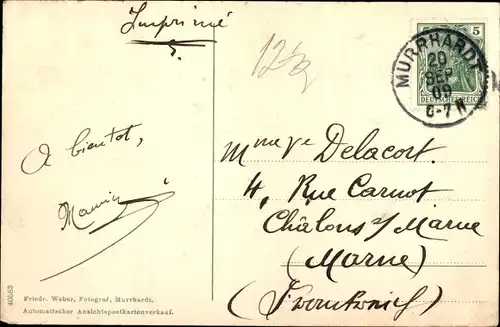 Imprimé
12½
5
MURRHARDT
20
SEP
09
6-7 N
DEUTSCHES REICH
A bientôt,
Mme Ve Delacort.
4, Rue Carnot
Châlons s/ Marne
(Marne)
(Frankreich)
40583
Friedr. Weber, Fotograf, Murrhardt.
Automatischer Ansichtspostkartenverkauf.